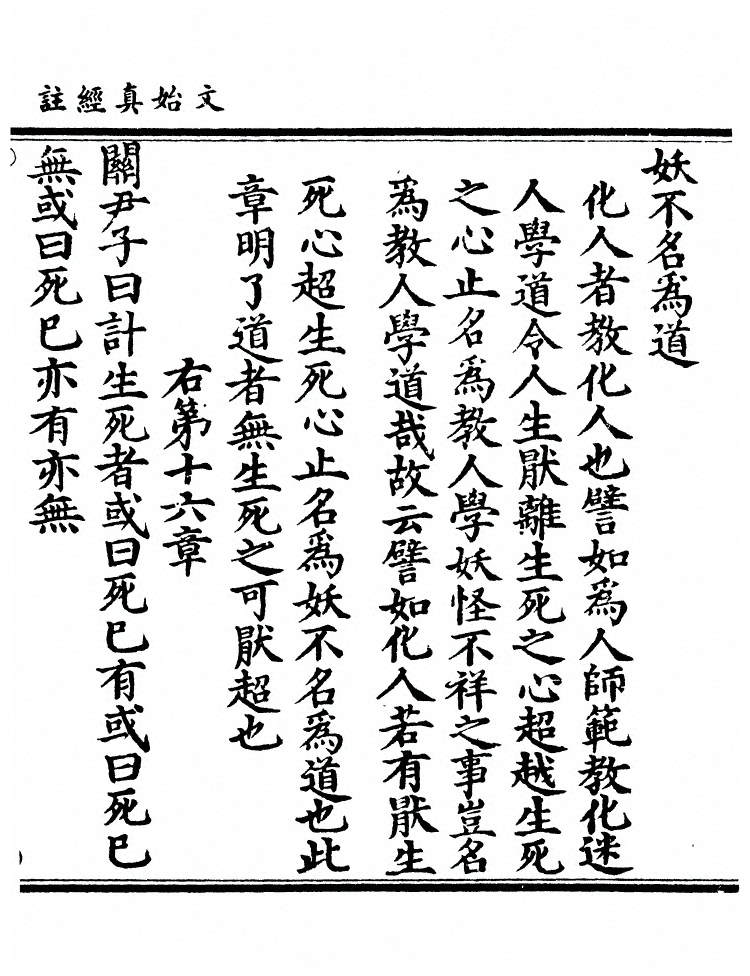 文始真經註
妖不名為道
化人者教化人也譬如為人師範教化迷
人學道令人生厭離生死之心超越生死
之心止名為教人學妖怪不祥之事豈名
為教人學道哉故云譬如化人若有厭生
死心超生死心止名為妖不名為道也此
章明了道者無生死之可厭超也
右第十六章
關尹子曰計生死者或曰死巳有或曰死巳
無或曰死巳亦有亦無